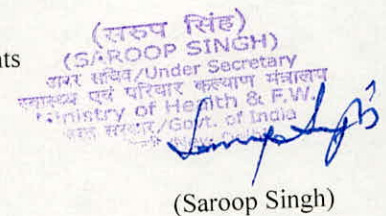 nts
(सरुप सिंह)
(SAROOP SINGH)
अवर सचिव/Under Secretary
स्वास्थ्य एवं परिवार कल्याण मंत्रालय
Ministry of Health & F.W.
भारत सरकार/Govt. of India
(Saroop Singh)